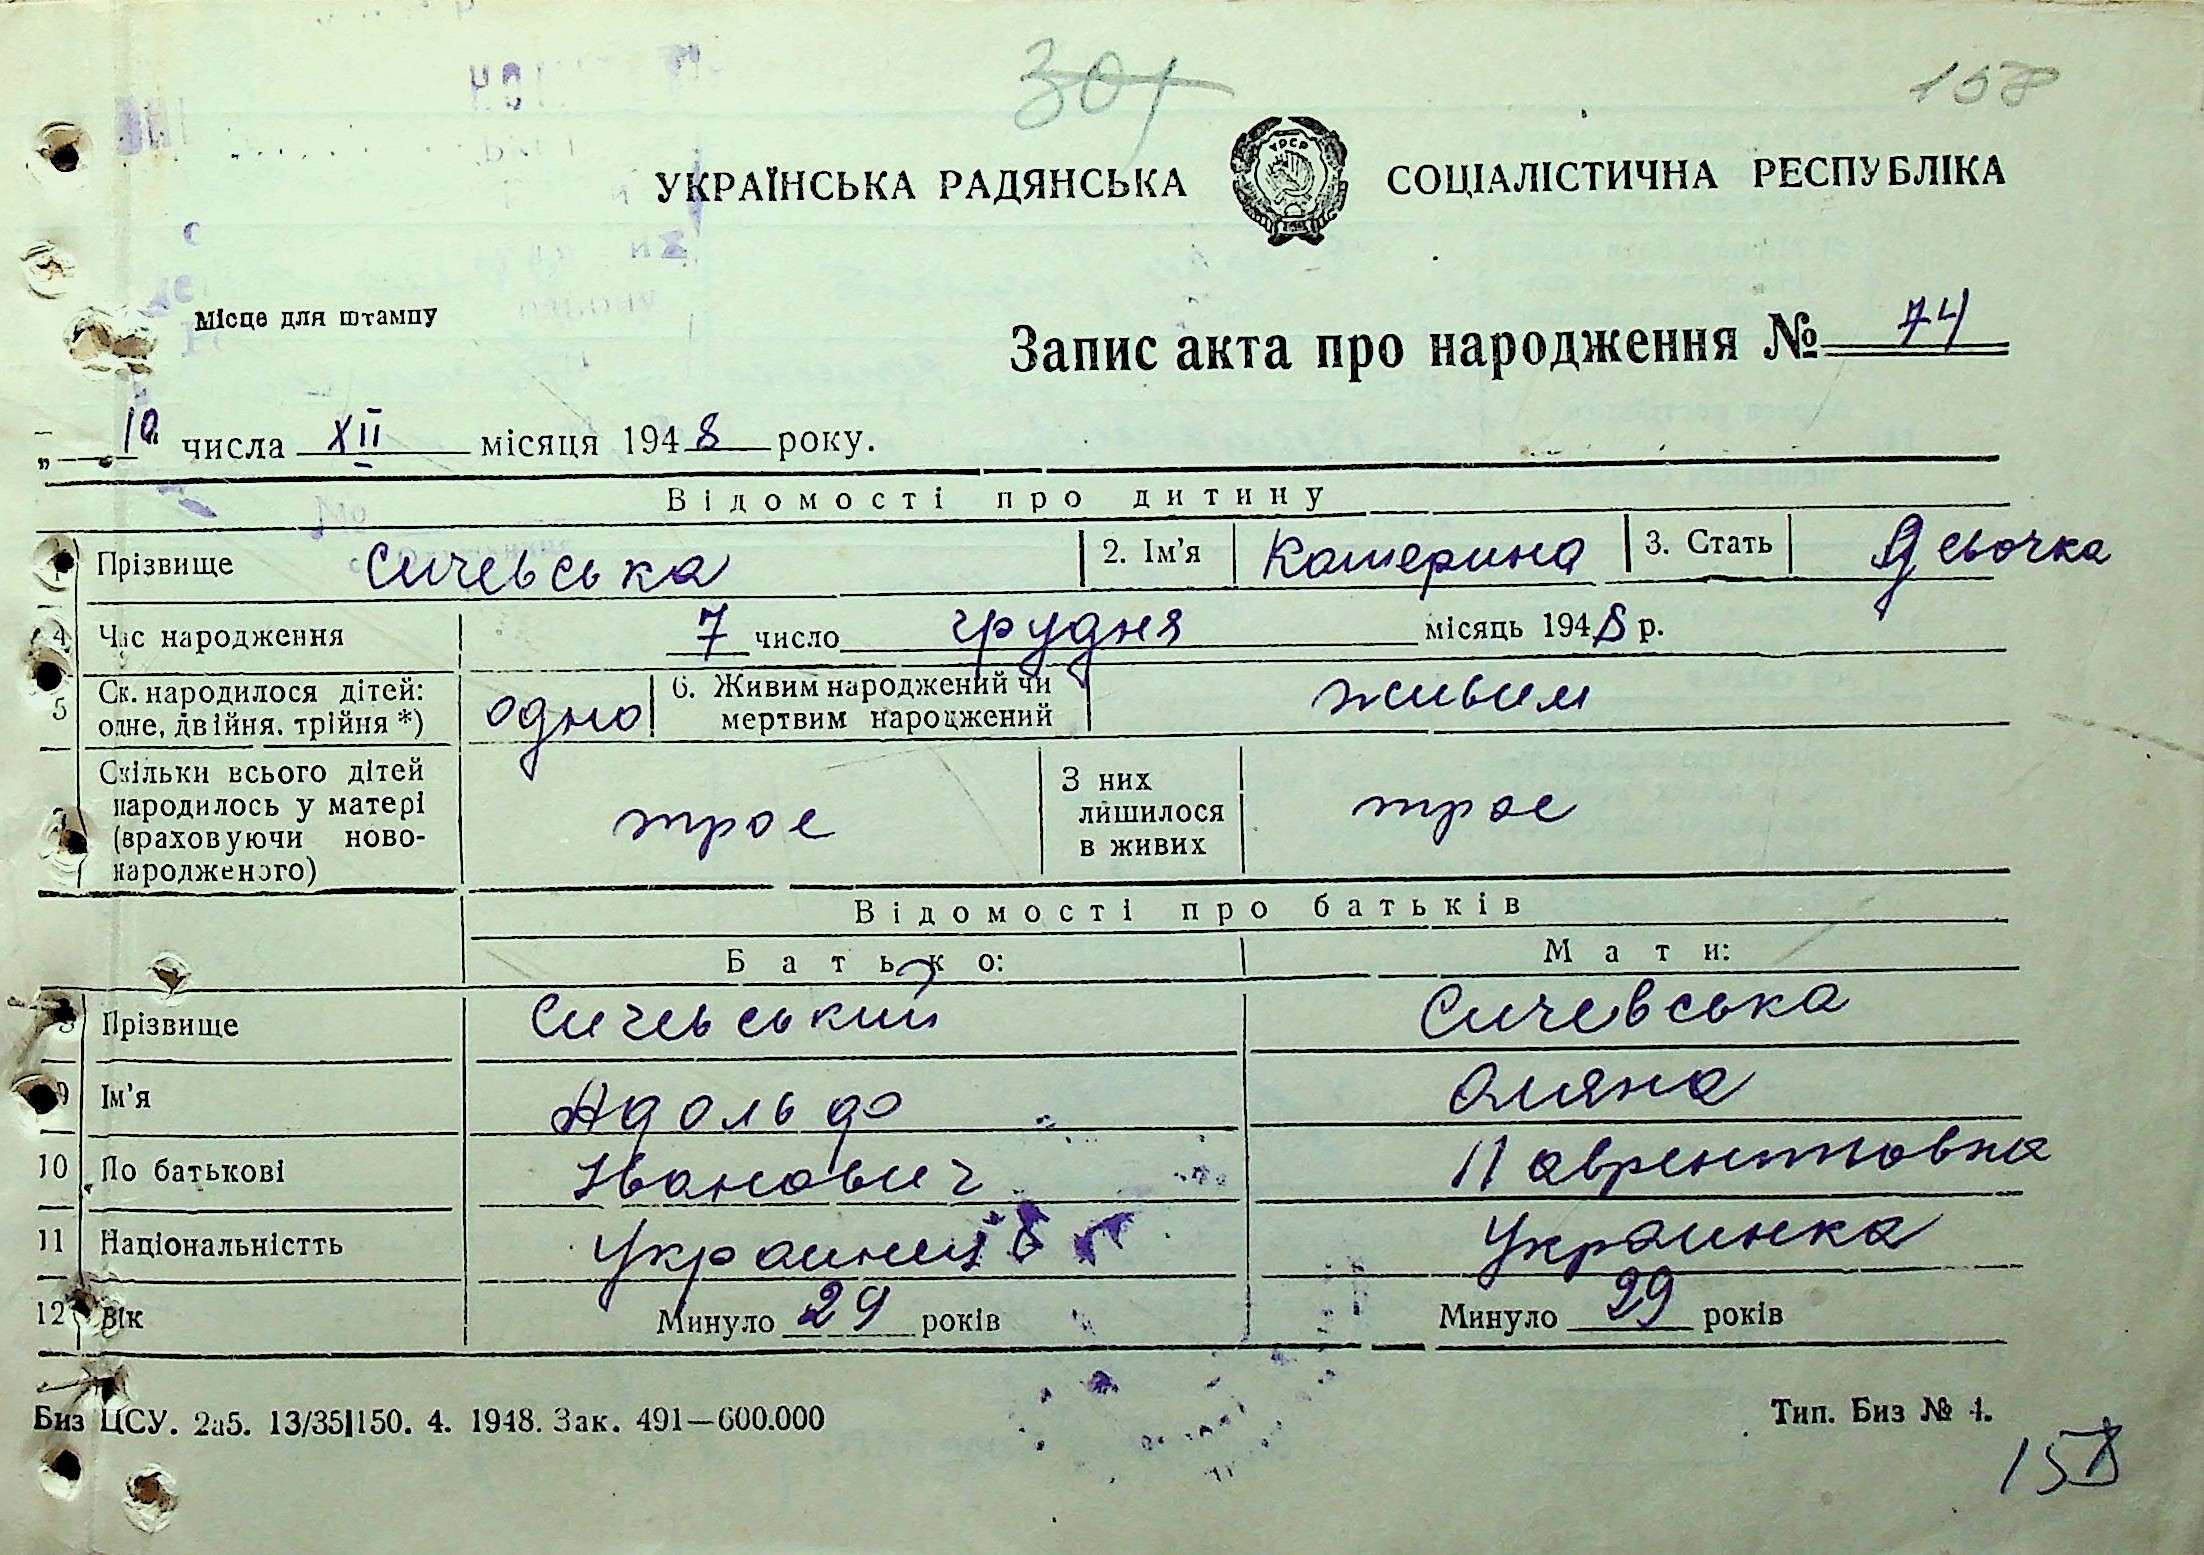 301
158
УКРАЇНСЬКА РАДЯНСЬКА СОЦІАЛІСТИЧНА РЕСПУБЛІКА
УРСР
Місце для штампу
Запис акта про народження № 74
„10“ числа XII місяця 1948 року.
Відомості про дитину
1 Прізвище Сичевська 2. Ім'я Катерина 3. Стать Дівочка
4 Час народження 7 число грудня місяць 1948 р.
5 Ск. народилося дітей: одне, двійня, трійня *) одно 6. Живим народжений чи мертвим народжений живим
7 Скільки всього дітей народилось у матері (враховуючи новонародженого) трое З них лишилося в живих трое
Відомості про батьків
Батько: Мати:
8 Прізвище Сичевський Сичевська
9 Ім'я Адольф Оляна
10 По батькові Іванович Лаврентовна
11 Національністть Украинець Украинка
12 Вік Минуло 29 років Минуло 29 років
Биз ЦСУ. 2а5. 13/35|150. 4. 1948. Зак. 491—600.000 Тип. Биз № 4.
158